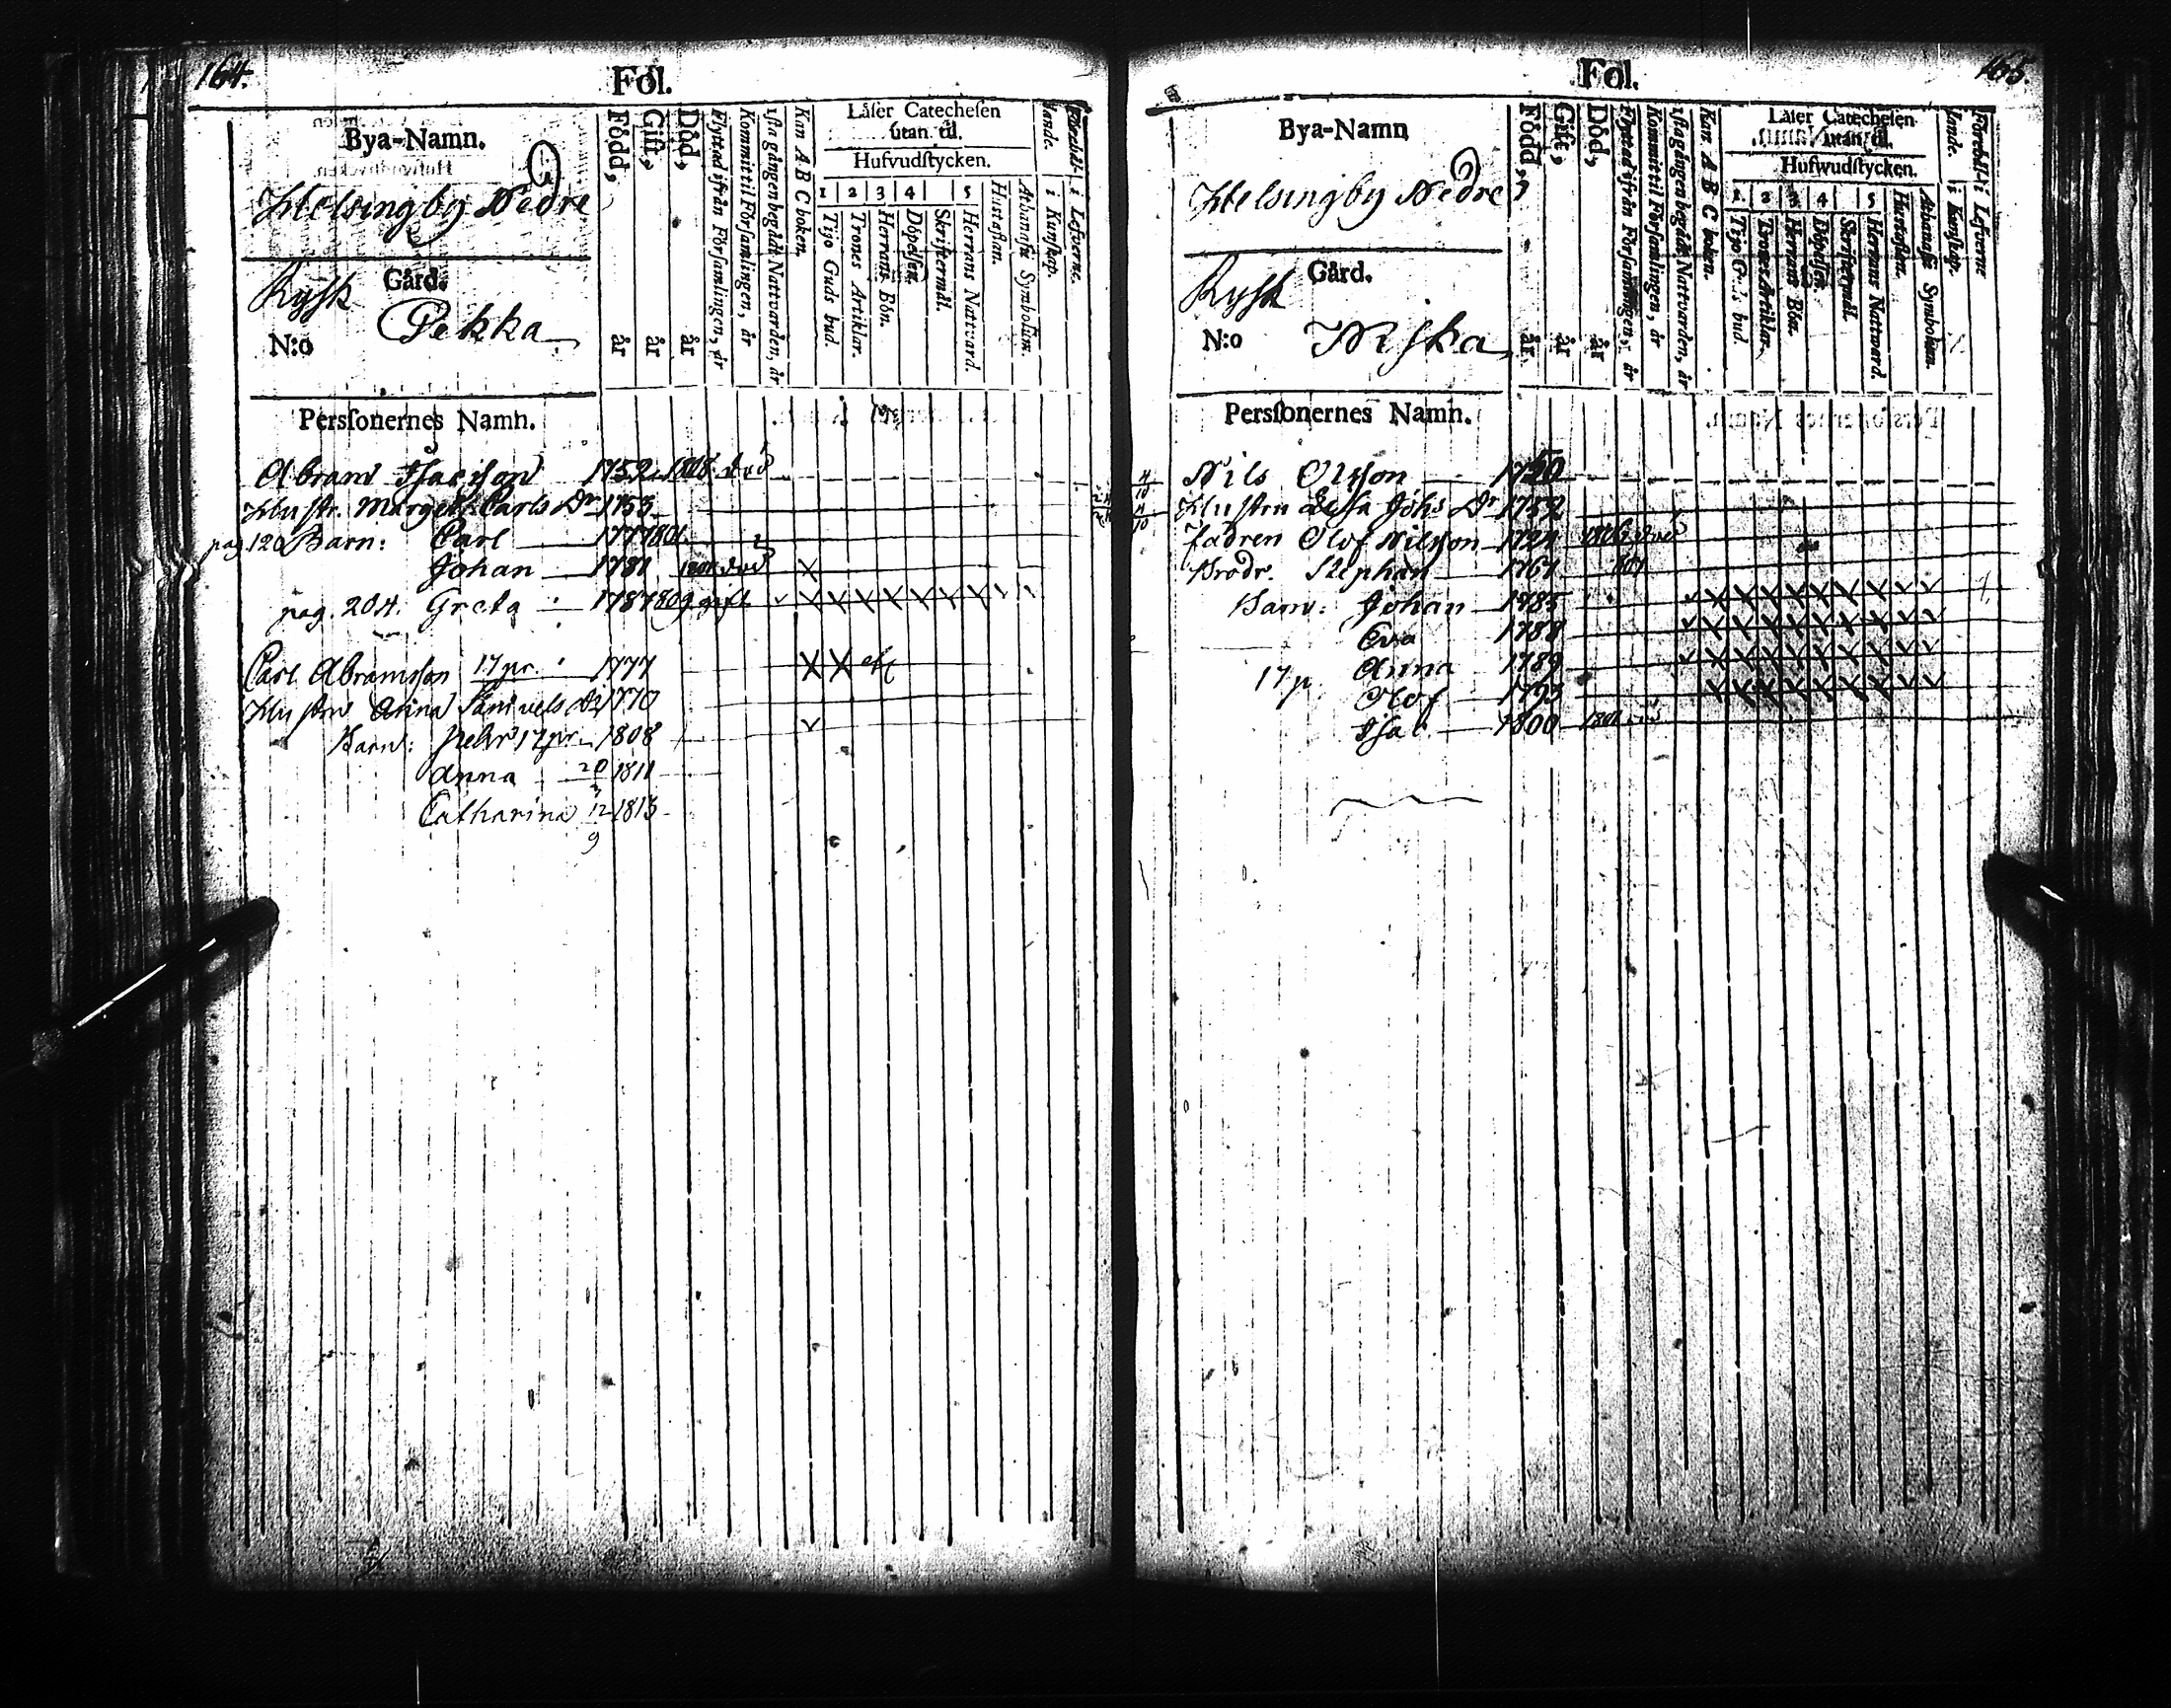 164.
Fol.
Bya-Namn.
Helsingby Nedre
Rysk Gård.
N:o Pekka
Född, år
Gift, år
Död, år
Flyttad ifrån Församlingen, år
Kommit til Församlingen, år
1sta gången begådt Nattvarden, år
Kan A B C boken.
Låser Catechesen
utan til.
Hufvudstycken.
1 2 3 4 5
Tijo Guds bud.
Trones Artiklar.
Herrans Bön.
Döpelsen.
Skriftermål.
Herrans Nattvard.
Hustaflan.
Athanasii Symbolum.
i Kunskap.
i Lefverne.
Personernes Namn.
Abram Isacsson 1752 1808 död
Hustr. Marget. Carls Dr 1753
pag. 120 Barn: Carl 1777 1801
Johan 1781 död
pag. 204. Greta 1787 1809 gift
Carl Abramsson 17 pr. 1777
Hustru Anna 1770
Barn: Pehr 17 pr. 1808
Anna 20/3 1811
Catharina 12/9 1813
165.
Fol.
Bya-Namn
Helsingby Nedre
Rysk Gård.
N:o
Född, år
Gift, år
Död, år
Flyttad ifrån Församlingen, år
Kommit til Församlingen, år
1sta gången begådt Nattvarden, år
Kan A B C boken.
Låser Catechesen
utan til.
Hufwudstycken.
1 2 3 4 5
Tijo Guds bud.
Trones Artiklar.
Herrans Bön.
Döpelsen.
Skriftermål.
Herrans Nattward.
Hustaflan.
Athanasii Symbolum.
i Kunskap.
i Lefverne
Personernes Namn.
Nils Olsson 1750
Hustru Lisa Johs Dr 1752
fadren Olof Nilsson 1724 1806 död
Brodr. Stephan 1761
Barn: Johan 1785
Eva 1788
Anna 1789
17 p. Olof 1793
Isac 1800 1801